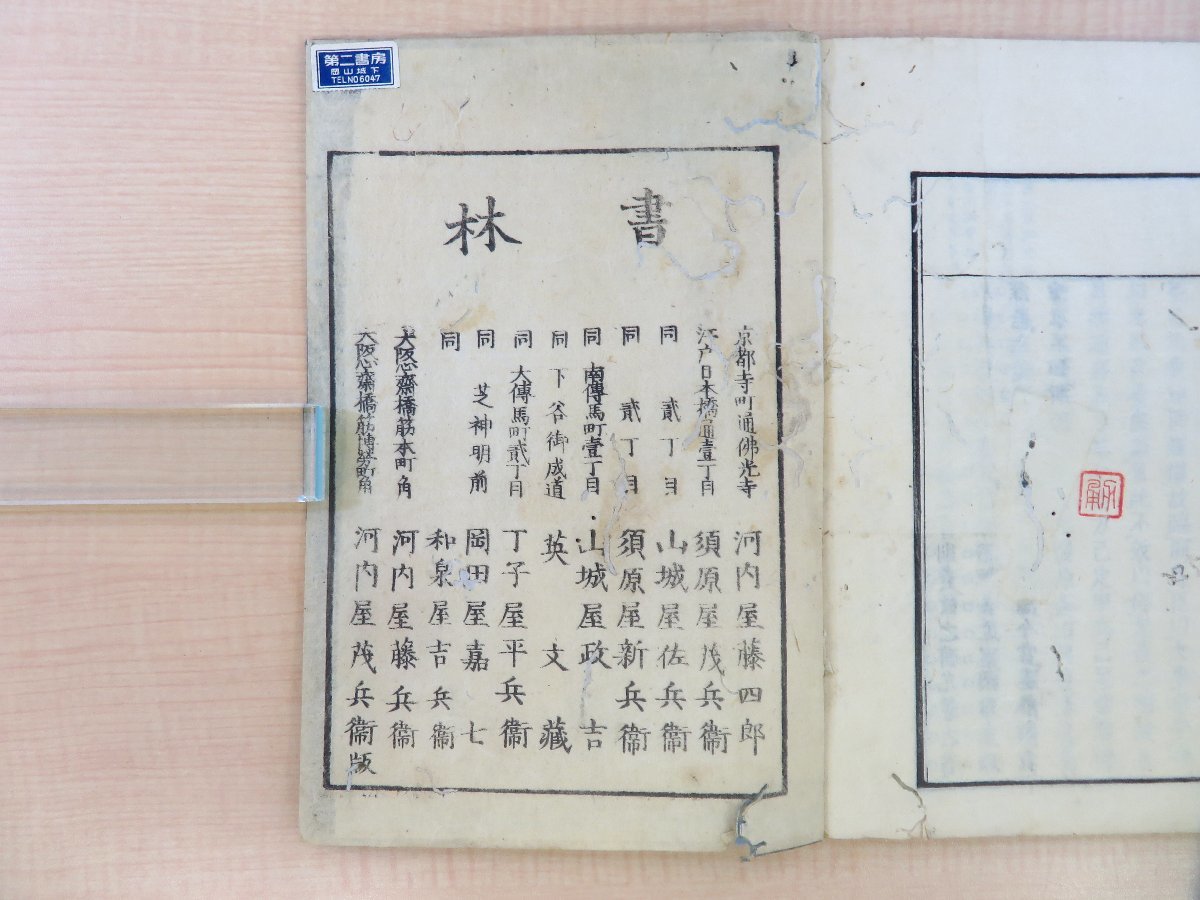 第二書房
岡山城下
TELNO6047
書林
京都寺町通佛光寺 河内屋藤四郎
江戸日本橋通壹丁目 須原屋茂兵衞
同 貳丁目 山城屋佐兵衞
同 貳丁目 須原屋新兵衞
同 南傳馬町壹丁目 山城屋政吉
同 下谷御成道 英文藏
同 大傳馬町貳丁目 丁子屋平兵衞
同 芝神明前 岡田屋嘉七
同 和泉屋吉兵衞
大阪心齋橋筋本町角 河内屋藤兵衞
大阪心齋橋筋博労町角 河内屋茂兵衞版